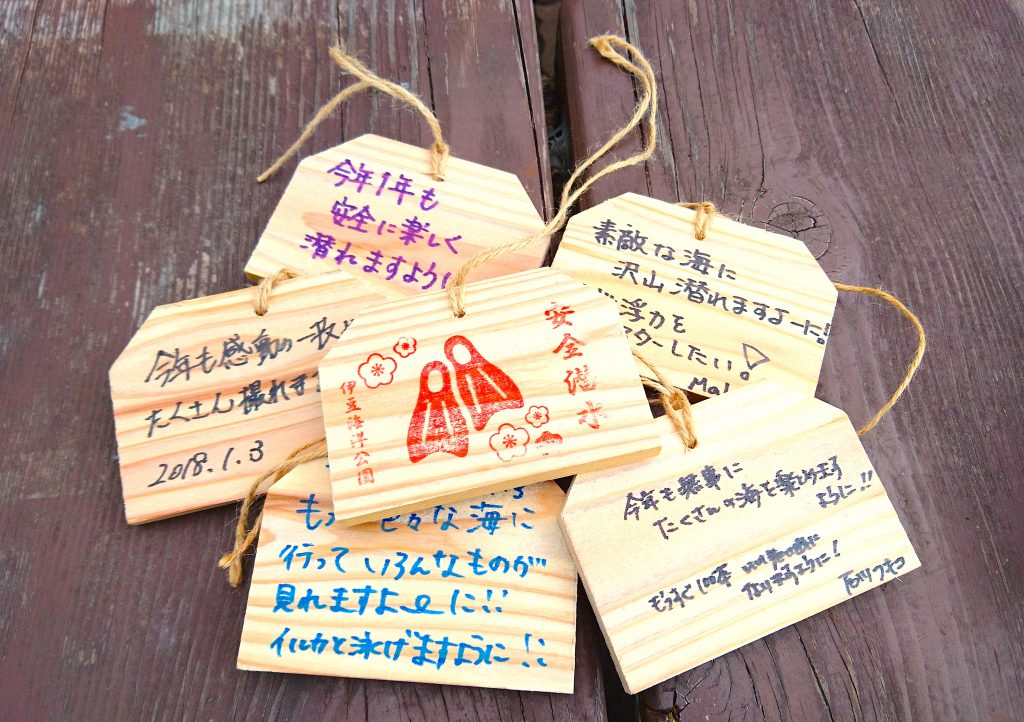 今年1年も
安全に楽しく
潜れますように
素敵な海に
沢山潜れますよーに!
浮力を
ターしたい。
Mai
今年も感動の一波
たくさん撮れます
2018.1.3
安全潜水
伊豆海洋公園
な海に
行っていろんなものが
見れますよーに!!
イルカと泳げますように!!
今年も無事に
たくさんの海を楽しめます
ように!!
もうすぐ100本
なりますように!